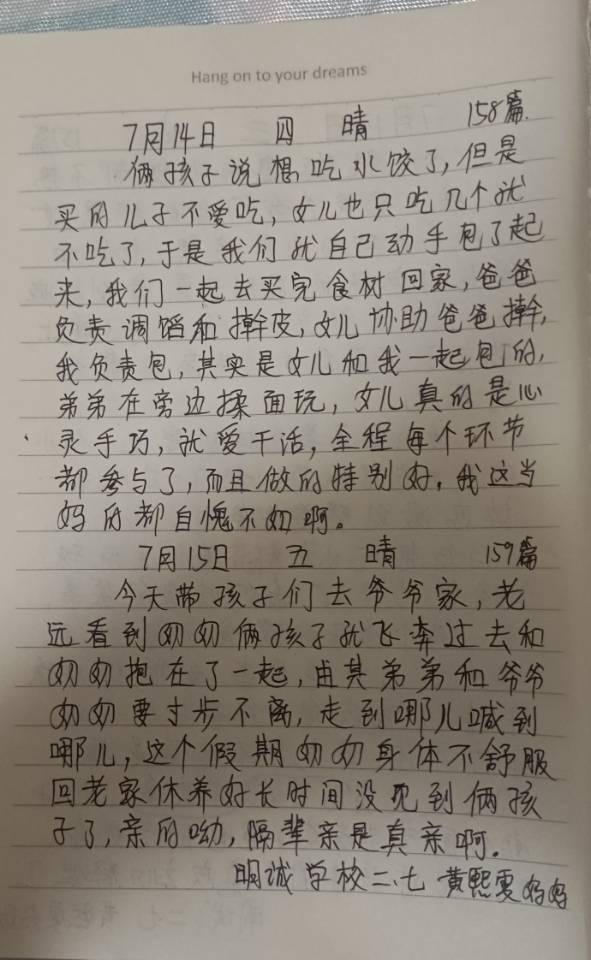 Hang on to your dreams
7月14日 四 晴 158篇.
俩孩子说想吃水饺了,但是
买的儿子不爱吃,女儿也只吃几个就
不吃了,于是我们就自己动手包了起
来,我们一起去买完食材回家,爸爸
负责调馅和擀皮,女儿协助爸爸擀,
我负责包,其实是女儿和我一起包的,
弟弟在旁边揉面玩,女儿真的是心
灵手巧,就爱干活,全程每个环节
都参与了,而且做的特别好,我这当
妈的都自愧不如啊。
7月15日 五 晴 159篇
今天带孩子们去爷爷家,老
远看到奶奶俩孩子就飞奔过去和
奶奶抱在了一起,由其弟弟和爷爷
奶奶要寸步不离,走到哪儿喊到
哪儿,这个假期奶奶身体不舒服
回老家休养好长时间没见到俩孩
子了,亲的呦,隔辈亲是真亲啊。
明诚学校二.七 黄熙雯妈妈